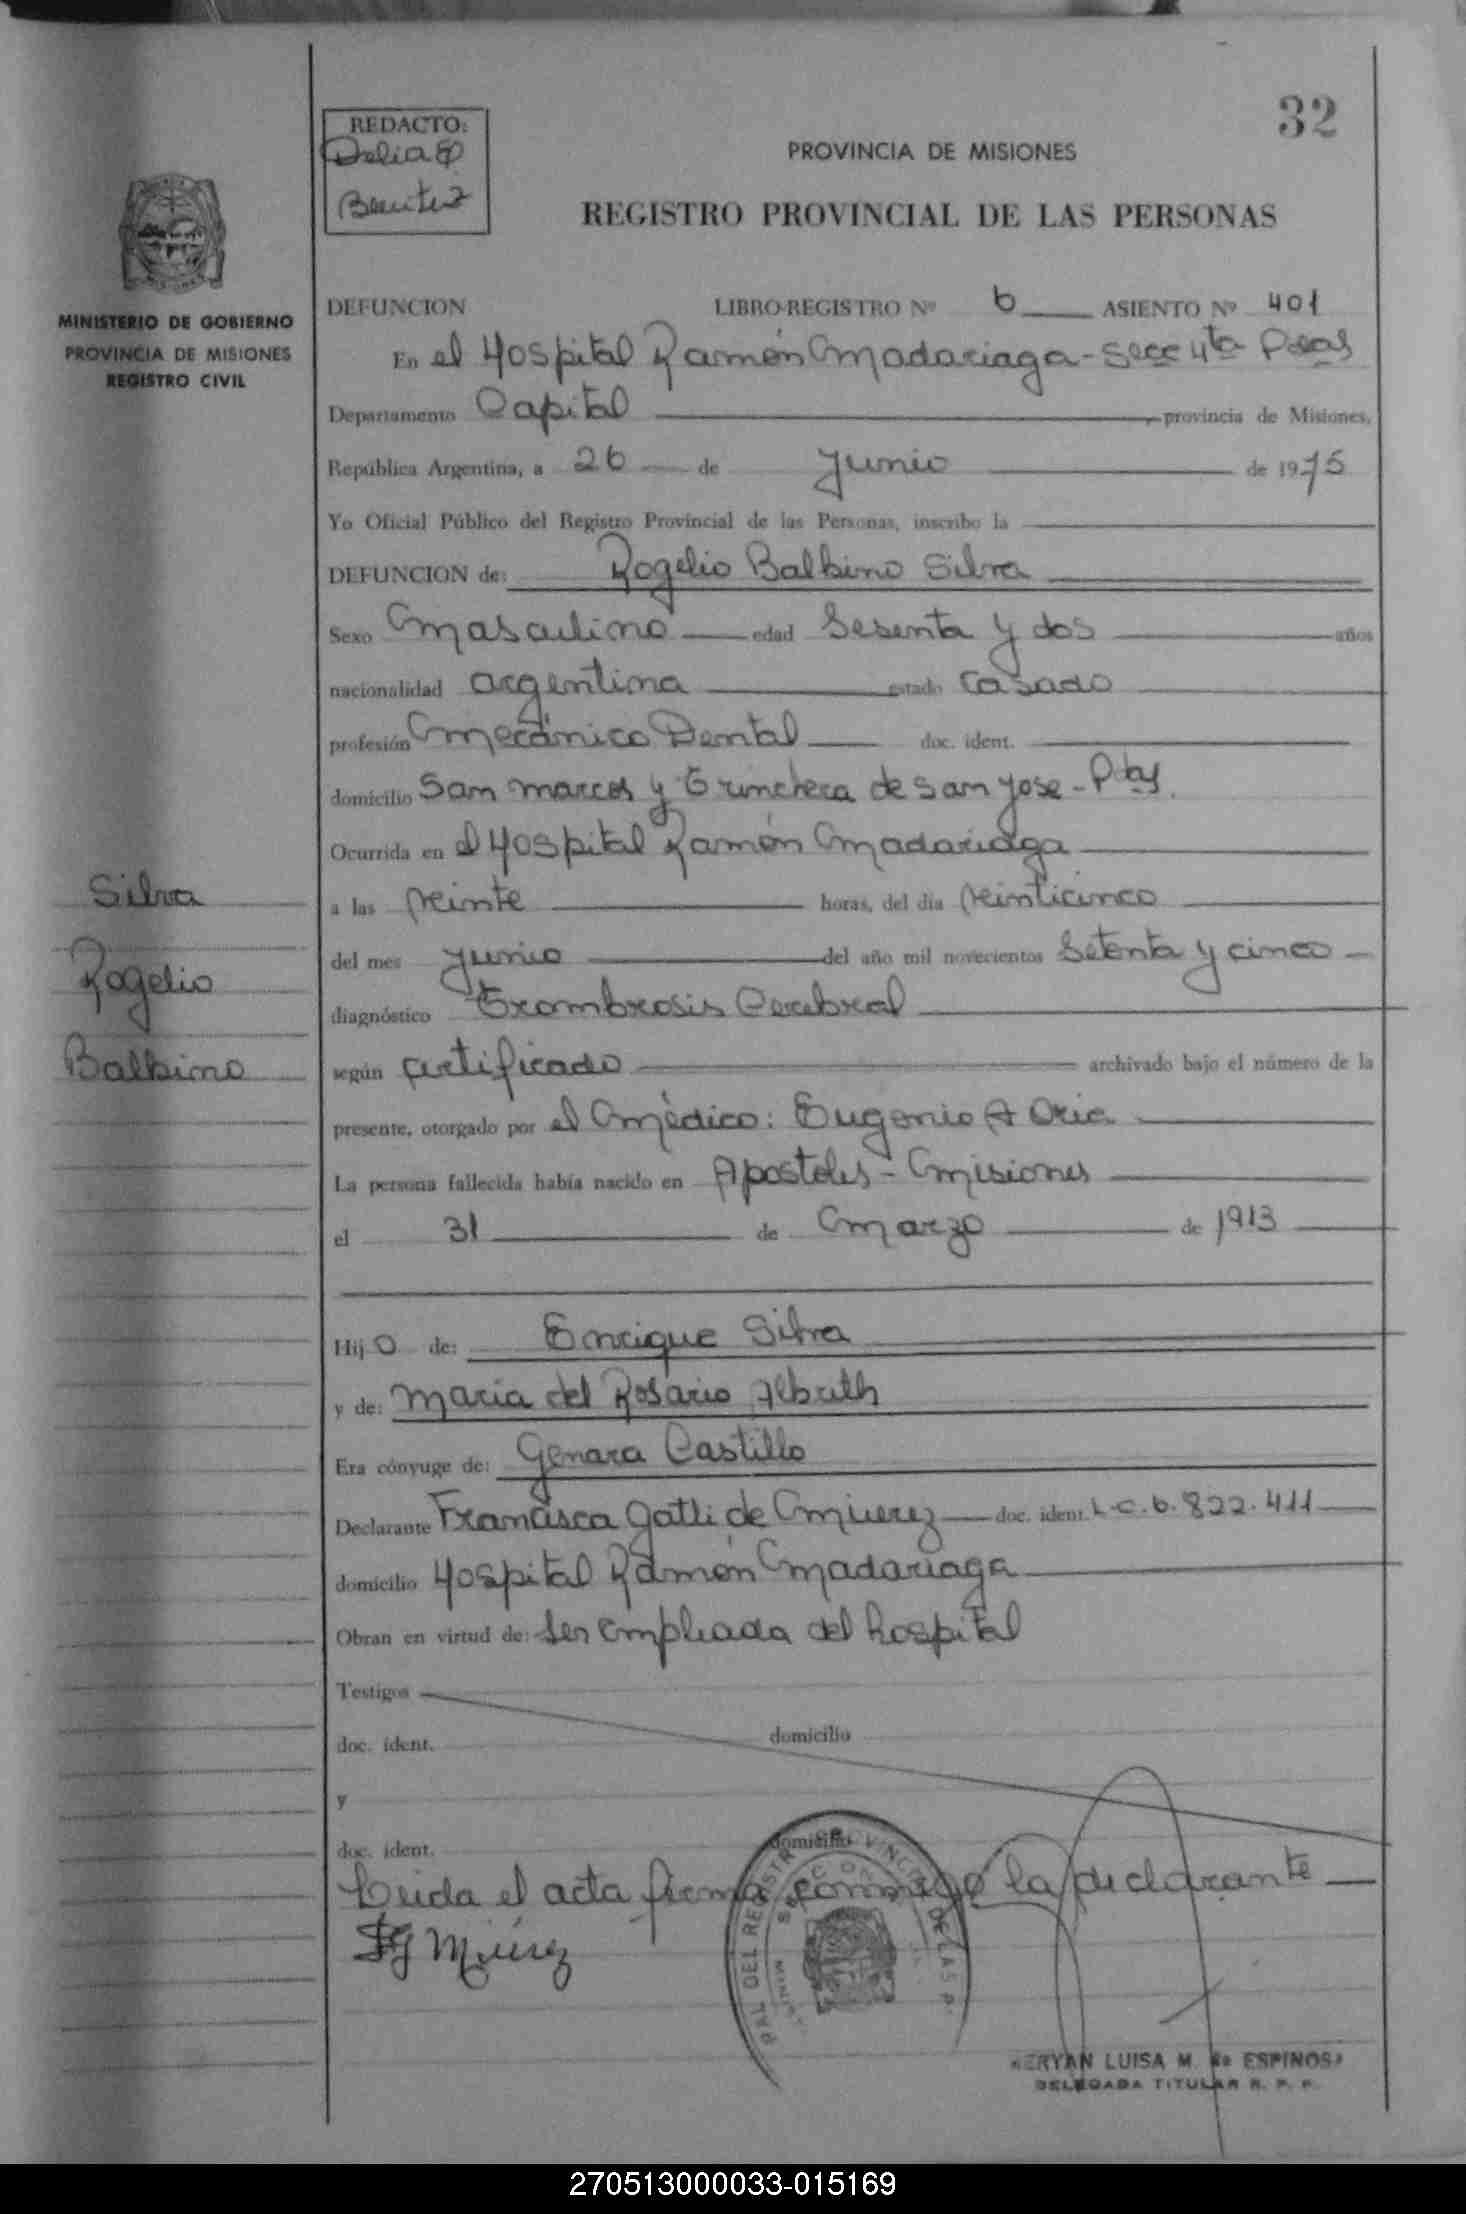 32
REDACTO:
Delia E
Benitez
PROVINCIA DE MISIONES
REGISTRO PROVINCIAL DE LAS PERSONAS
MINISTERIO DE GOBIERNO
PROVINCIA DE MISIONES
REGISTRO CIVIL
DEFUNCION LIBRO-REGISTRO Nº 6 ASIENTO Nº 401
En el Hospital Ramón Madariaga - Secc 4ta Pdas
Departamento Capital, provincia de Misiones,
República Argentina, a 26 de Junio de 1975
Yo Oficial Público del Registro Provincial de las Personas, inscribo la
DEFUNCION de: Rogelio Balbino Silva
Sexo Masculino edad Sesenta y dos años
nacionalidad argentina estado Casado
profesión Mecánico Dental doc. ident.
domicilio San Marcos y Trinchera de San Jose - Pdas.
Ocurrida en el Hospital Ramón Madariaga
a las Veinte horas, del día Veinticinco
del mes Junio del año mil novecientos Setenta y cinco
diagnóstico Trombrosis Cerebral
según certificado archivado bajo el número de la
presente, otorgado por el Médico: Eugenio A Oria
La persona fallecida había nacido en Apostoles - Misiones
el 31 de Marzo de 1913
Hijo de: Enrique Silva
y de: Maria del Rosario
Era cónyuge de: Genara Castillo
Declarante Francisca Gatti de Mierez doc. ident. L.C. 6.822.411
domicilio Hospital Ramón Madariaga
Obran en virtud de: Ser empleada del hospital
Testigos
doc. ident. domicilio
y
doc. ident. domicilio
Leida el acta firma conmigo la declarante
FG Miérez
Silva
Rogelio
Balbino
LUISA M. de ESPINOSA
DELEGADA TITULAR R. P. P.
270513000033-015169